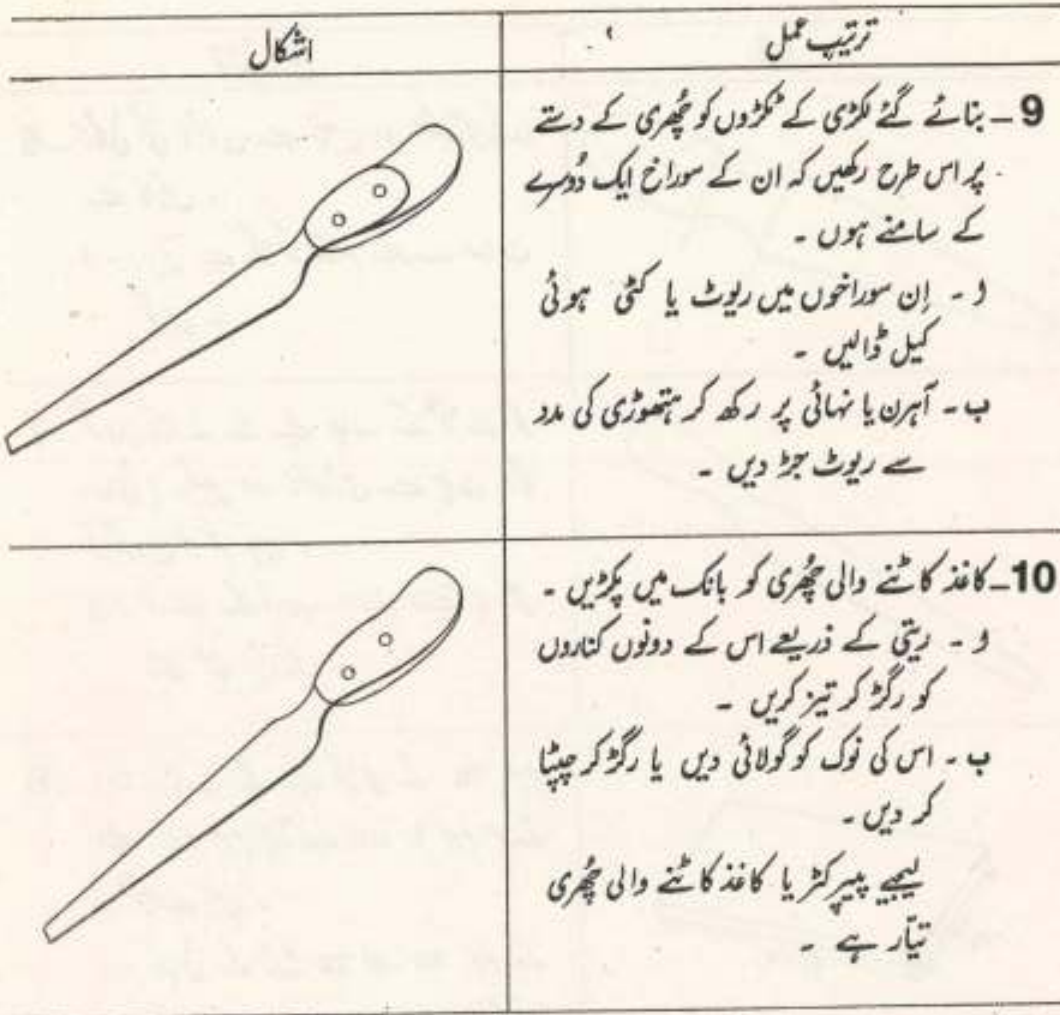 ترتیب عمل
اشکال
9۔ بنائے گئے لکڑی کے ٹکڑوں کو چُھری کے دستے
پر اس طرح رکھیں کہ ان کے سوراخ ایک دُوسرے
کے سامنے ہوں ۔
ا ۔ اِن سوراخوں میں ریوٹ یا کٹی ہوئی
کیل ڈالیں ۔
ب ۔ آہرن یا نہائی پر رکھ کر ہتھوڑی کی مدد
سے ریوٹ جڑ دیں ۔
10۔ کاغذ کاٹنے والی چُھری کو بانک میں پکڑیں ۔
ا ۔ ریتی کے ذریعے اس کے دونوں کناروں
کو رگڑ کر تیز کریں ۔
ب ۔ اس کی نوک کو گولائی دیں یا رگڑ کر چپٹا
کر دیں ۔
لیجیے پیپر کٹر یا کاغذ کاٹنے والی چُھری
تیّار ہے ۔